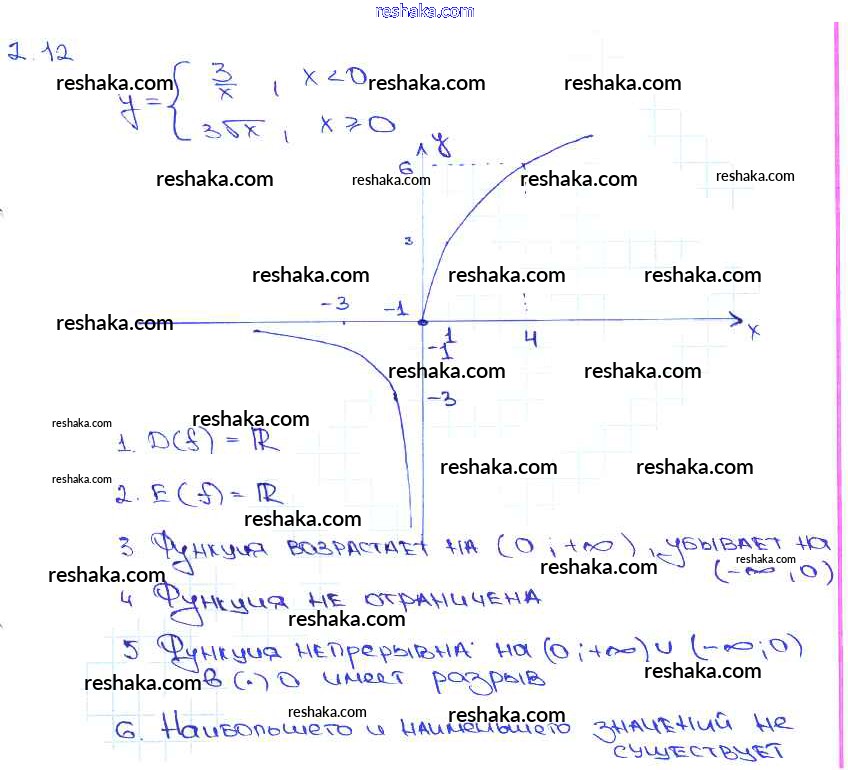 reshaka.com
2.12
y = { 3/x , x < 0
3√x , x ⩾ 0
reshaka.com reshaka.com reshaka.com
y
6
reshaka.com reshaka.com reshaka.com reshaka.com
3
reshaka.com reshaka.com reshaka.com
-3 -1
reshaka.com
1 4 x
-1
reshaka.com reshaka.com
-3
reshaka.com reshaka.com
1. D(f) = ℝ
reshaka.com reshaka.com
reshaka.com
2. E(f) = ℝ
reshaka.com
3 Функция возрастает на (0 ; +∞) , убывает на
(-∞ ; 0)
reshaka.com reshaka.com reshaka.com
4 Функция не ограничена
reshaka.com
5 Функция непрерывна: на (0 ; +∞) ∪ (-∞ ; 0)
в (·) 0 имеет разрыв
reshaka.com reshaka.com
reshaka.com reshaka.com
6. Наибольшего и наименьшего значений не
существует